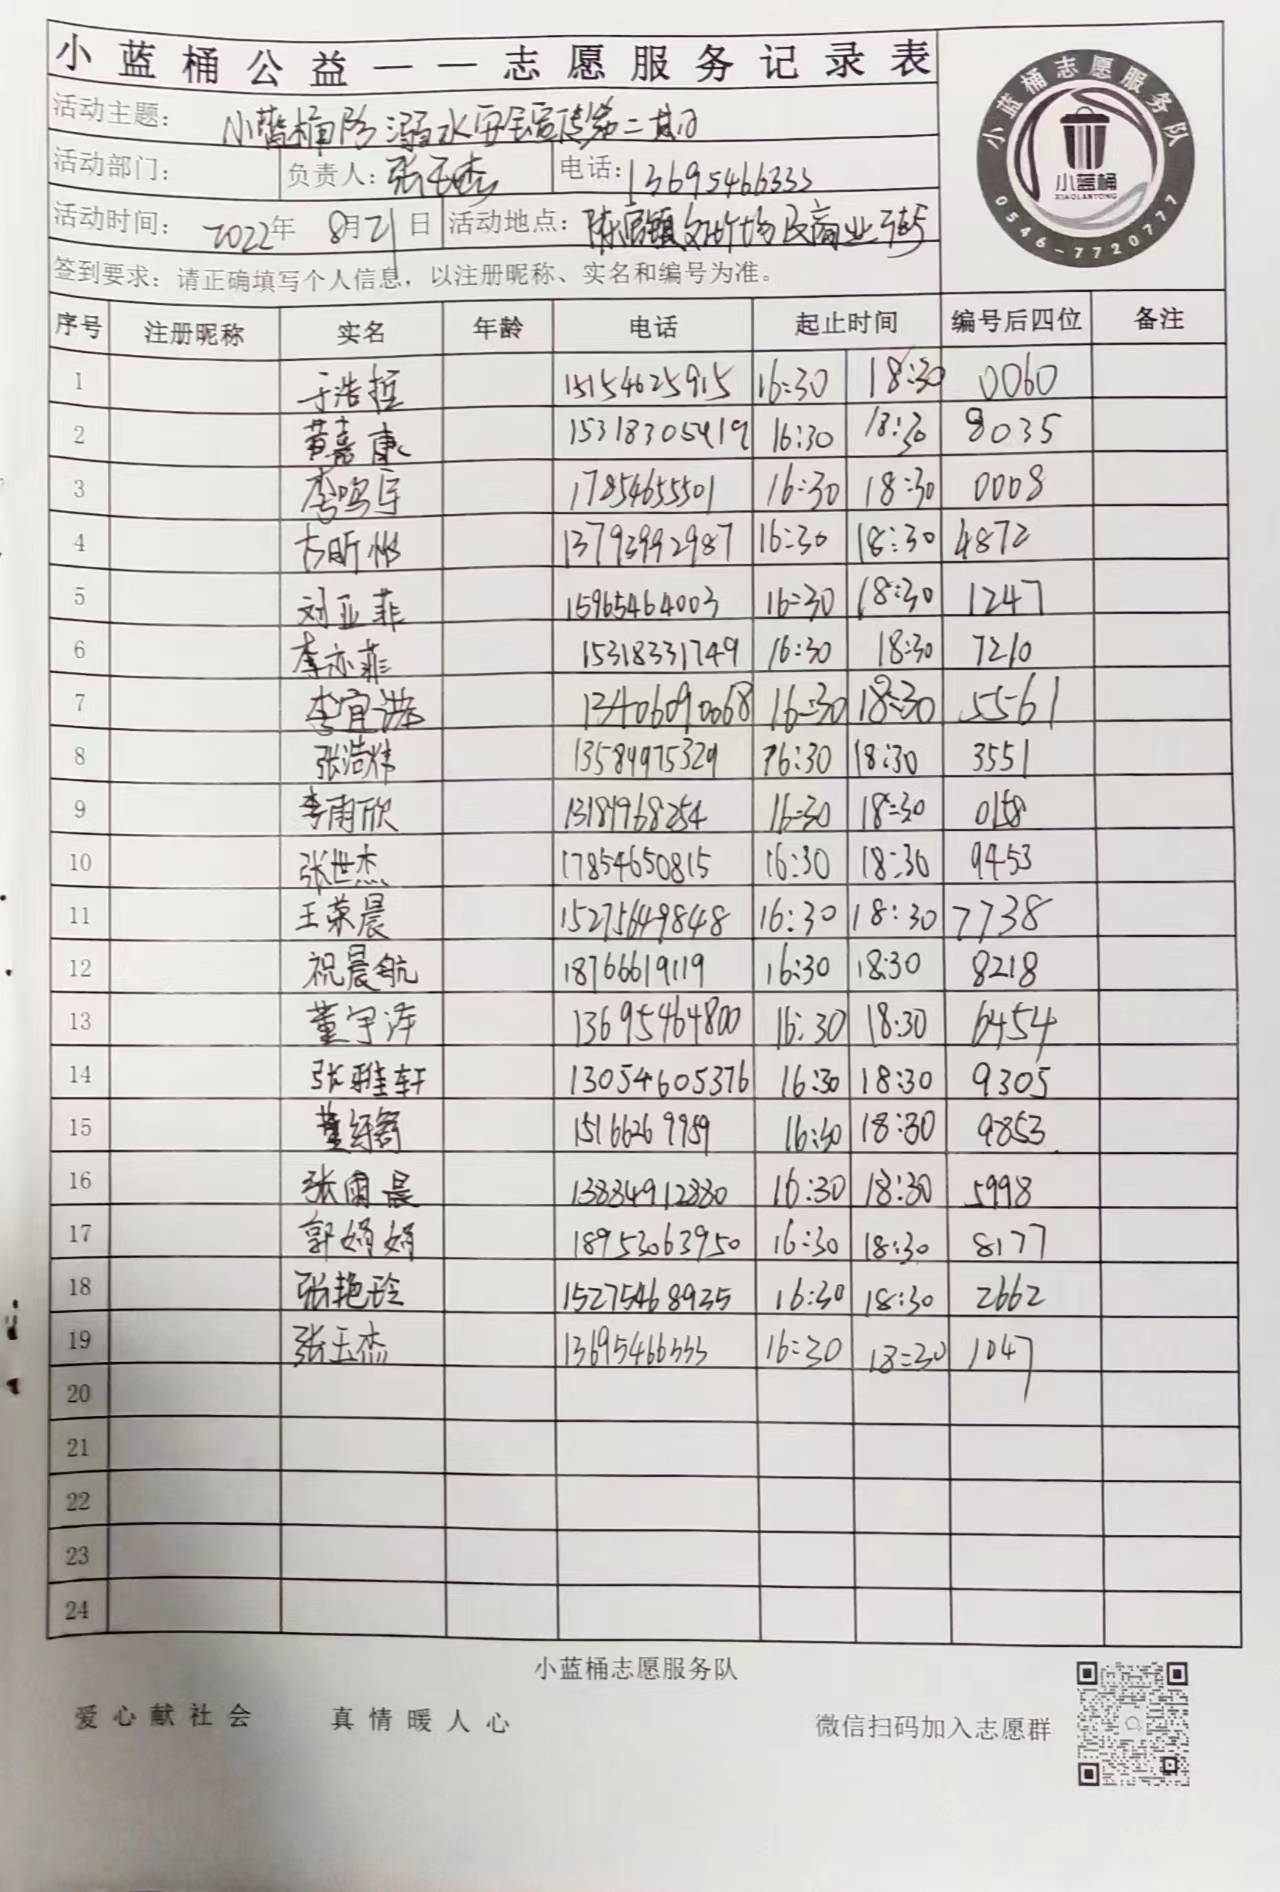 小蓝桶公益——志愿服务记录表
小蓝桶志愿服务队
小蓝桶
XIAOLANTONG
0546-7720777
活动主题： 小蓝桶防溺水安全宣传第二期
活动部门： 负责人：张玉杰 电话：13695466333
活动时间： 2022年 8月21日 活动地点：陈官镇 民商业街
签到要求：请正确填写个人信息，以注册昵称、实名和编号为准。
序号 注册昵称 实名 年龄 电话 起止时间 编号后四位 备注
1 于浩哲 15154625915 16:30 18:30 0060
2 黄嘉康 15318305419 16:30 18:30 8035
3 李鸣宇 17854655501 16:30 18:30 0008
4 昕 13793992987 16:30 18:30 4872
5 刘亚菲 15965464003 16:30 18:30 1247
6 李亦菲 15318331749 16:30 18:30 7210
7 李宜洪 13406090068 16:30 18:30 5561
8 张浩炜 13589975329 16:30 18:30 3551
9 李雨欣 13181968254 16:30 18:30 0158
10 张世杰 17854650815 16:30 18:30 9453
11 王荣晨 15275649848 16:30 18:30 7738
12 祝晨航 18766619119 16:30 18:30 8218
13 董宇泽 13695464800 16:30 18:30 6454
14 张雅轩 13054605376 16:30 18:30 9305
15 董 舒 15166269959 16:30 18:30 9853
16 张雨晨 13884912880 16:30 18:30 5998
17 郭娟娟 18953063950 16:30 18:30 8177
18 张艳玲 15275468935 16:30 18:30 2662
19 张玉杰 13695466333 16:30 18:30 1047
20
21
22
23
24
小蓝桶志愿服务队
爱心献社会 真情暖人心 微信扫码加入志愿群